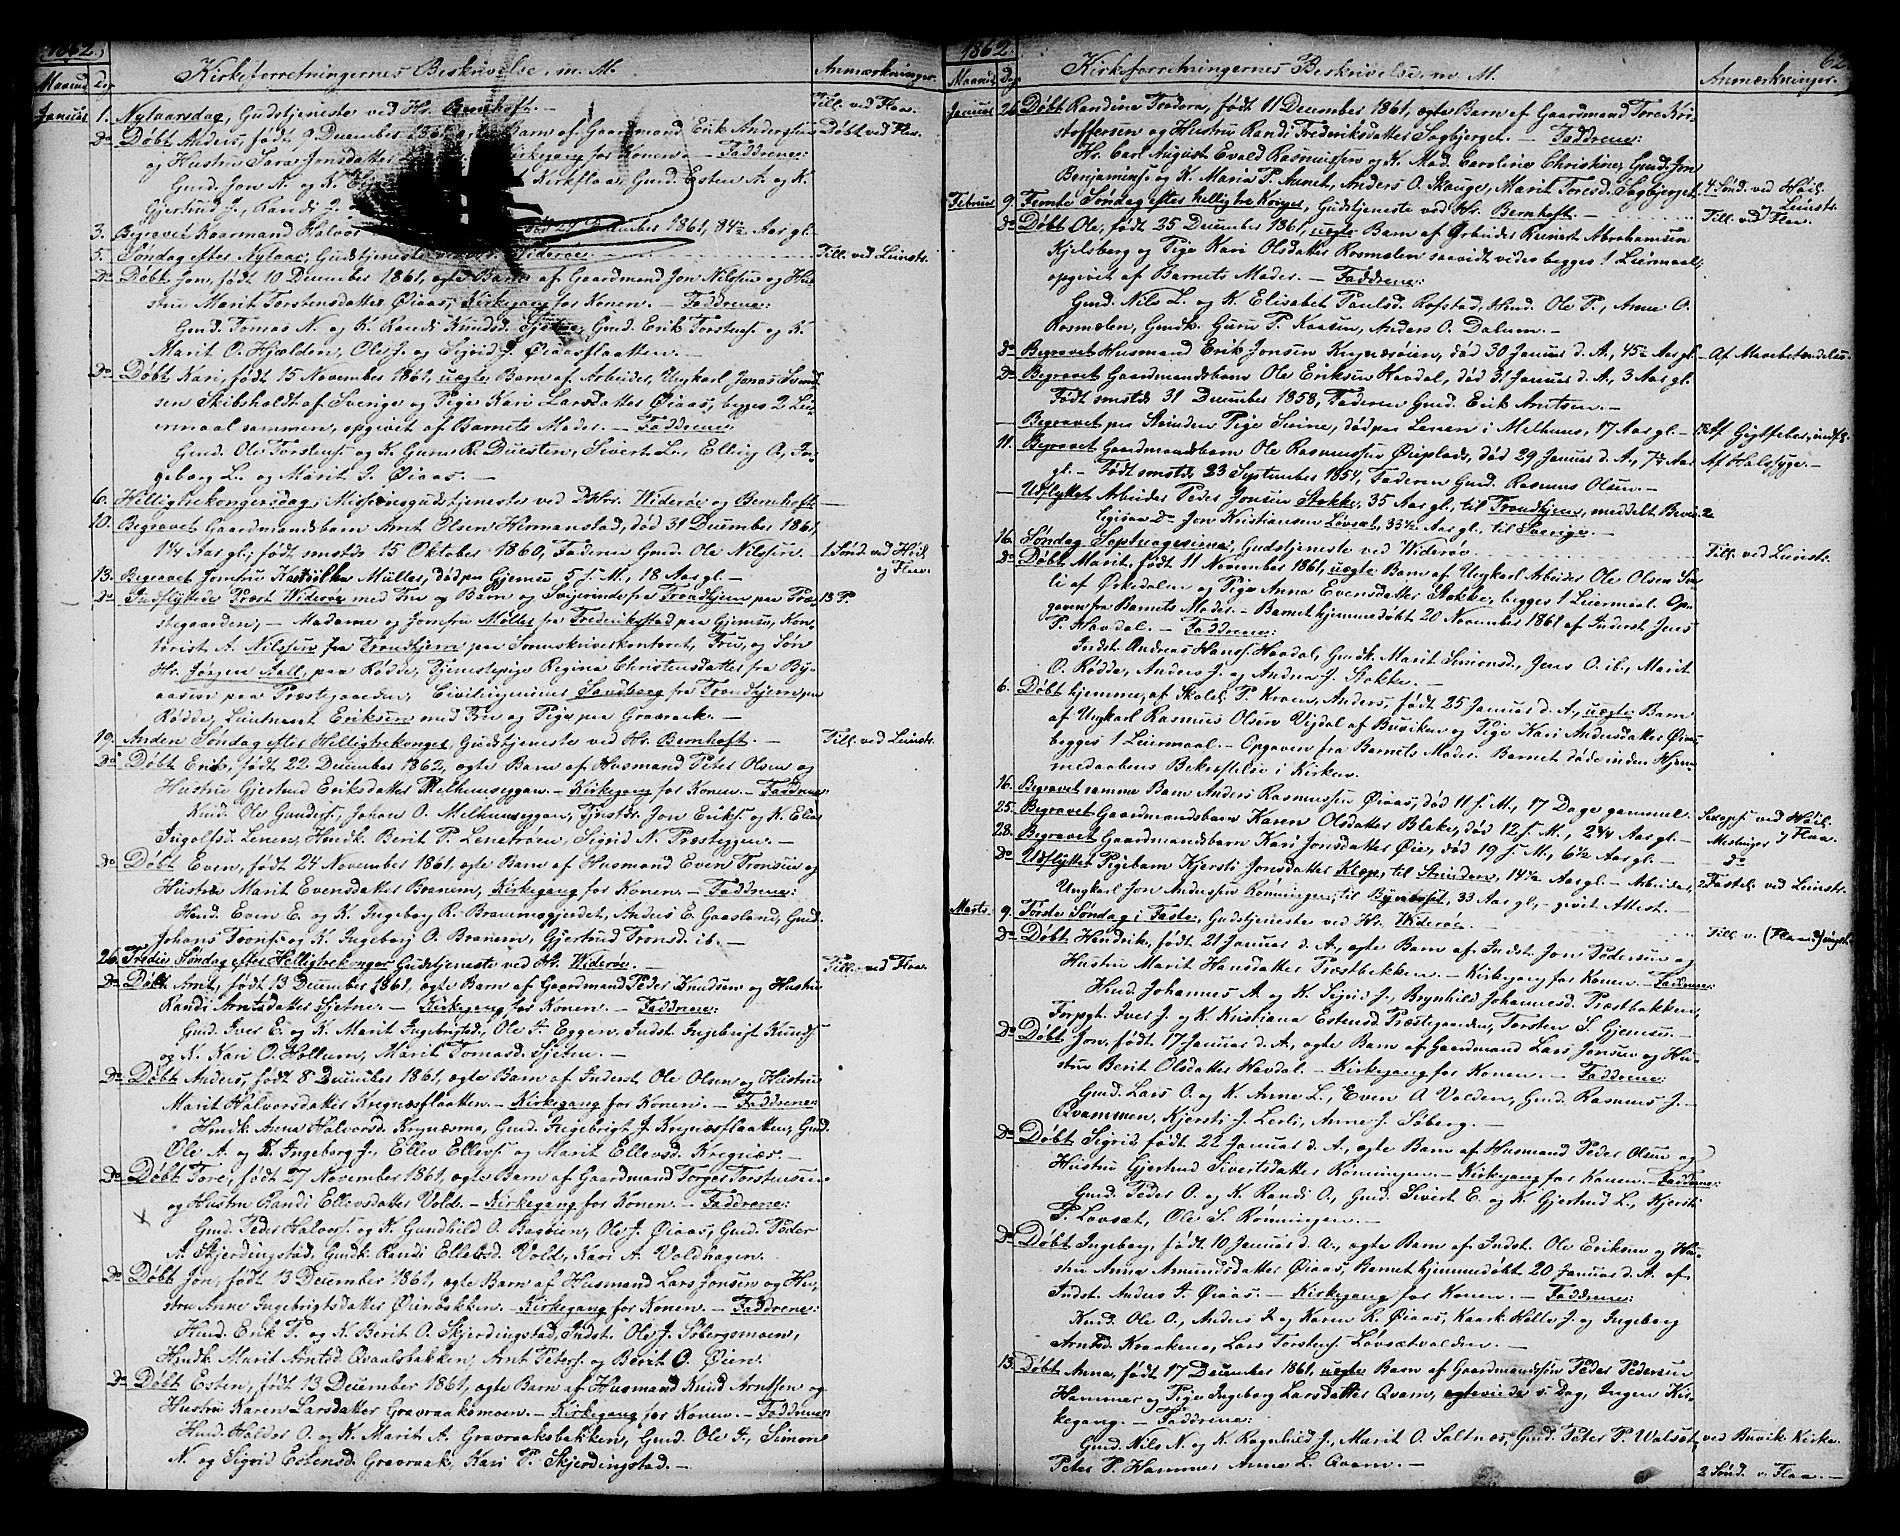 1862.
Maaned Dag Kirkeforretningernes Beskrivelse, m. M. Anmærkninger.
Januar 1. Nytaarsdag, Gudstjeneste ved Hr. Bernhoft. — Till. ved Flaa.
Do Døbt Anders, født 9 December 1861, Barn af Gaardmand Erik Andersen Døbt ved Flaa.
og Hustru Sara Jonsdatter Kirkegang for Konen. — Faddrene:
Gmd. Jon A. og K. Kirkflaa, Gmd. Esten A. og K.
Gjertrud J., Randi J.
3. Begravet Kaarmand Halvor December 1861, 84½ Aar gl.
5. Søndag efter Nytaar, Gudstjeneste Widerøe. Till. ved Leinstr.
Do Døbt Jon, født 10 December 1861, ægte Barn af Gaardmand Jon Nilssen og Hu-
stru Marit Torstensdatter Øiaas, Kirkegang for Konen. — Faddrene:
Gmd. Tomas N. og K. Randi Knudsd. Sjetne, Gmd. Erik Torstens. og K.
Marit O. Hjælden, Ole J. og Sigrid J. Øiaasflaatten. —
Do Døbt Kari, født 15 November 1861, uægte Barn af Arbeider, Ungkarl Jonas Svend-
sen Skibsholdt af Sverige og Pige Kari Larsdatter Øiaas, begges 2 Lei-
ermaal sammen, opgivet af Barnets Moder. — Faddrene
Gmd. Ole Torstens. og K. Guru R. Duesten, Sivert L., Elling A., In-
geborg L. og Marit J. Øiaas. —
6. Helligtrekongersdag, Missionsgudstjeneste ved DHrr. Widerøe og Bernhoft
10. Begravet Gaardmandsbarn Arnt Olsen Hermanstad, død 31 December 1861,
1¼ Aar gl., født smstds 15 Oktober 1860, Faderen Gmd. Ole Nilssen. 1. Sønd. ved Høil.
og Flaa.
13. Begravet Jomfru Müller, død paa Gjemsu 5 f. M., 18 Aar gl. —
Do Indflyttede Præst Widerøe med Fru og Barn og Svigerinde fra Trondhjem paa Præ- 13 P.
stegaarden, — Madame og Jomfru Møller fra Frederikstad paa Gjemsu, Kon-
torist A. Nilssen fra Trondhjem paa Sorenskriverkontoret, Fru, og Søn
Hr. Jørgen Aall, paa Rødde, Tjenestepige Regina Christensdatter fra By-
aasen paa Præstegaarden, Civilingeniør Sandberg fra Trondhjem, paa
Rødde, Lieutnant Eriksen med Fru og Pige paa Gravraak. —
19. Anden Søndag efter Helligtrekonger, Gudstjeneste ved Hr. Bernhoft. — Till. ved Leinstr.
Do Døbt Erik, født 22 December 1862, ægte Barn af Husmand Peter Olsen og
Hustru Gjertrud Eriksdatter Melhuusyggen. — Kirkegang for Konen. — Faddrene
Hmd. Ole Gunders., Johan O. Melhuusyggen, Tjnstdr. Jon Eriks. og K. Elen
Ingolfsd. Lenen, Hmdk. Berit P. Lenetrøen, Sigrid N. Præsteggen. —
Do Døbt Even, født 24 November 1861, ægte Barn af Husmand Even Tronsen og
Hustru Marit Evensdatter Branem, Kirkegang for Konen. — Faddrene:
Hmd. Even E. og K. Ingeborg R. Bramemsgjerdet, Anders E. Gaasland, Gmd.
Johans Trons. og K. Ingeborg O. Branem, Gjertrud Tronsd. ib. —
26. Tredie Søndag efter Helligtrekonger Gudstjeneste ved Hr. Widerøe. — Till. ved Flaa.
Do Døbt Arnt, født 13 December 1861, ægte Barn af Gaardmand Peder Knudsen og Hustru
Randi Arntsdatter Sjetne. — Kirkegang for Konen. — Faddrene:
Gmd. Iver E. og K. Marit Ingebrigtsd., Ole A. Eggen, Indst. Ingebrigt Knuds.
og K. Kari O. Hollum, Marit Tomasd. Sjetne. —
Do Døbt Anders, født 8 December 1861, ægte Barn af Inderst Ole Olsen og Hustru
Marit Halvorsdatter Kregnæsflaatten. — Kirkegang for Konen. — Faddrene
Hmdk. Anna Halvorsd. Kregnæsmo, Gmd. Ingebrigt J. Kregnæsflaatten, Gmd.
Ole A. og K. Ingeborg J., Ellev Ellevs. og Marit Ellevsd. Kregnæs. —
Do Døbt Tore, født 27 November 1861, ægte Barn af Gaardmand Torger Torstensen
og Hustru Randi Ellevsdatter Vold. — Kirkegang for Konen. — Faddrene:
Gmd. Peder Halvors. og K. Gunhild O. Bagøien, Ole J. Øiaas, Gmd. Peder
A. Skjerdingstad, Gmdk. Randi Ellevsd. Vold, Kari A. Voldhagen.
Do Døbt Jon, født 13 December 1861, ægte Barn af Husmand Lars Jonsen og Hu-
stru Anne Ingebrigtsdatter Øienbakken. — Kirkegang for Konen. — Faddrene:
Hmd. Erik P. og K. Berit O. Skjerdingstad, Indst. Ole J. Søbergsmoen,
Hmdk. Marit Arntsd. Qvaalsbakken, Arnt Peters. og Berit O. Øien.
Do Døbt Esten, født 13 December 1861, ægte Barn af Husmand Knud Arntsen og
Hustru Karen Larsdatter Gravraaksmoen. — Kirkegang for Konen. — Faddrene
Hmd. Haldor O. og K. Marit A. Gravraaksbakken, Gmd. Ole A., Simon
N. og Sigrid Estensd. Gravraak, Kari P. Skjerdingstad. —
1862. 62
Maaned Dag Kirkeforretningernes Beskrivelse, m. M. Anmærkninger.
Januar 26. Døbt Randine Teodora, født 11 December 1861, ægte Barn af Gaardmand Tore Kri-
stoffersen og Hustru Randi Frederiksdatter Sagbjerget. — Faddrene:
Hr. Carl August Evald Rasmussen og K. Mad. Caroline Christine, Gmd. Jon
Benjamins. og K. Maria P. Aunet, Anders O. Skauge, Marit Toresd. Sagbjerget. 4. Sønd. ved Høil.
og Leinstr.
Februar 9. Femte Søndag efter helligtrekonger, Gudstjeneste ved Hr. Bernhoft. — Till. ved Flaa.
Do Døbt Ole, født 25 December 1861, uægte Barn af Arbeider Reinert Abrahamsen
Kjelsberg og Pige Kari Olsdatter Rosmelen saavidt vides begges 1 Leiermaal,
opgivet af Barnets Moder. — Faddrene:
Gmd. Nils L. og K. Elisabet Paulsd. Rofstad, Hmd. Ole P., Anne O.
Rosmælen, Gmdk. Guru P. Kaasen, Anders O. Dalum. —
Do Begravet Husmand Erik Jonsen Kregnæsøien, død 30 Januar d. A., 45½ Aar gl. — Af Mavebetændelse.
Do Begravet Gaardmandsbarn Ole Eriksen Havdal, død 31 Januar d. A., 3 Aar gl.
Født smstds 31 December 1858, Faderen Gmd. Erik Arntsen. —
— Begravet paa Steinden Pige Sivine, død paa Lenen i Melhuus, 17 Aar gl. — Af Gigtfeber, indfl.
11. Begravet Gaardmandsbarn Ole Rasmussen Øieplads, død 29 Januar d. A., 7¼ Aar Af Halssyge. —
gl. — Født smstds 23 September 1854, Faderen Gmd. Rasmus Olsen. —
— Udflyttet Arbeider Peder Jonsen Stokke, 35 Aar gl., til Trondhjem, meddelt Bevis 2
ligesaa Do Jon Kristiansen Løvset, 33½ Aar gl. til Sverige. —
16. Søndag Septuagesima, Gudstjeneste ved Widerøe Till. ved Leinstr.
Do Døbt Marit, født 11 November 1861, uægte Barn af Ungkarl Arbeider Ole Olsen
li af Orkedalen og Pige Anna Evensdatter Stokke, begges 1 Leiermaal. Op-
gaven fra Barnets Moder. — Barnet hjemmedøbt 20 November 1861 af Inderst Jens
P. Havdal. — Faddrene:
Indst. Andreas Hans. Havdal, Gmdk. Marit Simonsd., Jens O. ib., Marit
O. Rødde, Anders J. og Andrea J. Stokke. —
6. Døbt hjemme, af Skolel. P. Kroen, Anders, født 25 Januar d. A., uægte Barn
af Ungkarl Rasmus Olsen Vigdal af Buviken og Pige Kari Andersdatter Øiaas
begges 1 Leiermaal. — Opgaven fra Barnets Moder. Barnet døde inden Hjem-
medaabens Bekræftelse i Kirken.
16. Begravet samme Barn Anders Rasmussen Øiaas, død 11 f. M., 17 Dage gammel.
25. Begravet Gaardmandsbarn Karen Olsdatter Blekes, død 12 f. M., 2¾ Aar gl. Sexages. ved Høil.
og Flaa.
28. Begravet Gaardmandsbarn Kari Jonsdatter Øie, død 19 f. M., 6½ Aar gl. — Meslinger
Do
Do Udflyttet Pigebarn Kjersti Jonsdatter Klæp, til Strinden, 14½ Aar gl. — Arbeider, 2 Fastel. ved Leinstr.
Ungkarl Jon Andersen Rønningen, til Bynæsset, 33 Aar gl., — givet Attest. —
Marts 9. Første Søndag i Faste, Gudstjeneste ved Hr. Widerøe.
Do Døbt Hendrik, født 21 Januar d. A., ægte Barn af Indst. Jon Pedersen og Till. v. (Flaa)
Hustru Marit Hansdatter Præstbakken. — Kirkegang for Konen. — Faddrene:
Hmd. Johannes A. og K. Sigrid J., Brynhild Johannesd. Præstbakken,
Forpgt. Iver J. og K. Kristiana Estensd. Præstegaarden, Torsten S. Gjemsu. —
Do Døbt Jon, født 17 Januar d. A., ægte Barn af Gaardmand Lars Jonsen og Hu-
stru Berit Olsdatter Havdal. — Kirkegang for Konen. — Faddrene:
Gmd. Lars O. og K. Anne L., Even A Valden, Gmd. Rasmus J.
Qvammen, Kjersti J. Lerli, Anne J. Søberg. —
Do Døbt Sigrid født 22 Januar d. A., ægte Barn af Husmand Peder Olsen og
Hustru Gjertrud Sivertsdatter Rønningen. — Kirkegang for Konen. — Faddrene:
Gmd. Peder O. og K. Randi O., Gmd. Sivert E. og K. Gjertrud L., Kjersti
P. Lovsæt, Ole S. Rønningen. —
Do Døbt Ingeborg, født 10 Januar d. A., ægte Barn af Indst. Ole Eriksen og Hu-
stru Anna Amundsdatter Øiaas, Barnet hjemmedøbt 20 Januar d. A. af
Indst. Anders A. Øiaas. — Kirkegang for Konen. — Faddrene:
Hmd. Ole O., Anders J. og Karen R. Øiaas, Kaark. Helle J. og Ingeborg
Arntsd. Kraaken, Lars Torstens. Løvsætvalden. —
13. Døbt Anne, født 17 December 1861, uægte Barn af Gaardmandssøn Peder Pedersen
Hammer og Pige Ingeborg Larsdatter Qvam, ægteviede s. Dag, Ingen Kir-
kegang. — Faddrene:
Gmd. Nils N. og K. Ragnhild J., Marit O. Saltnes, Gmd. Peter P. Walset, ved Buvik Kirke.
Peter P. Hammer Anne L. Qvam. —
2 Sønd. v. Flaa. —